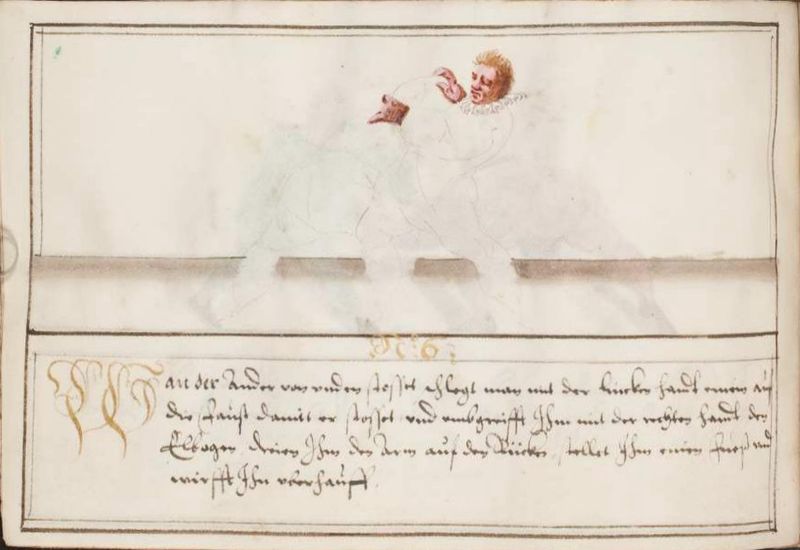 No: 6:
Wan der Ander von unden stosset schlegt man mit der lincken handt einem auf
die faust damitt er stosset und umbgreifft Ihm mit der rechten handt den
Elbogen dreien Ihm den Arm auf den Rücken stellet Ihm einen fueß und
wirfft Ihn uberhauff